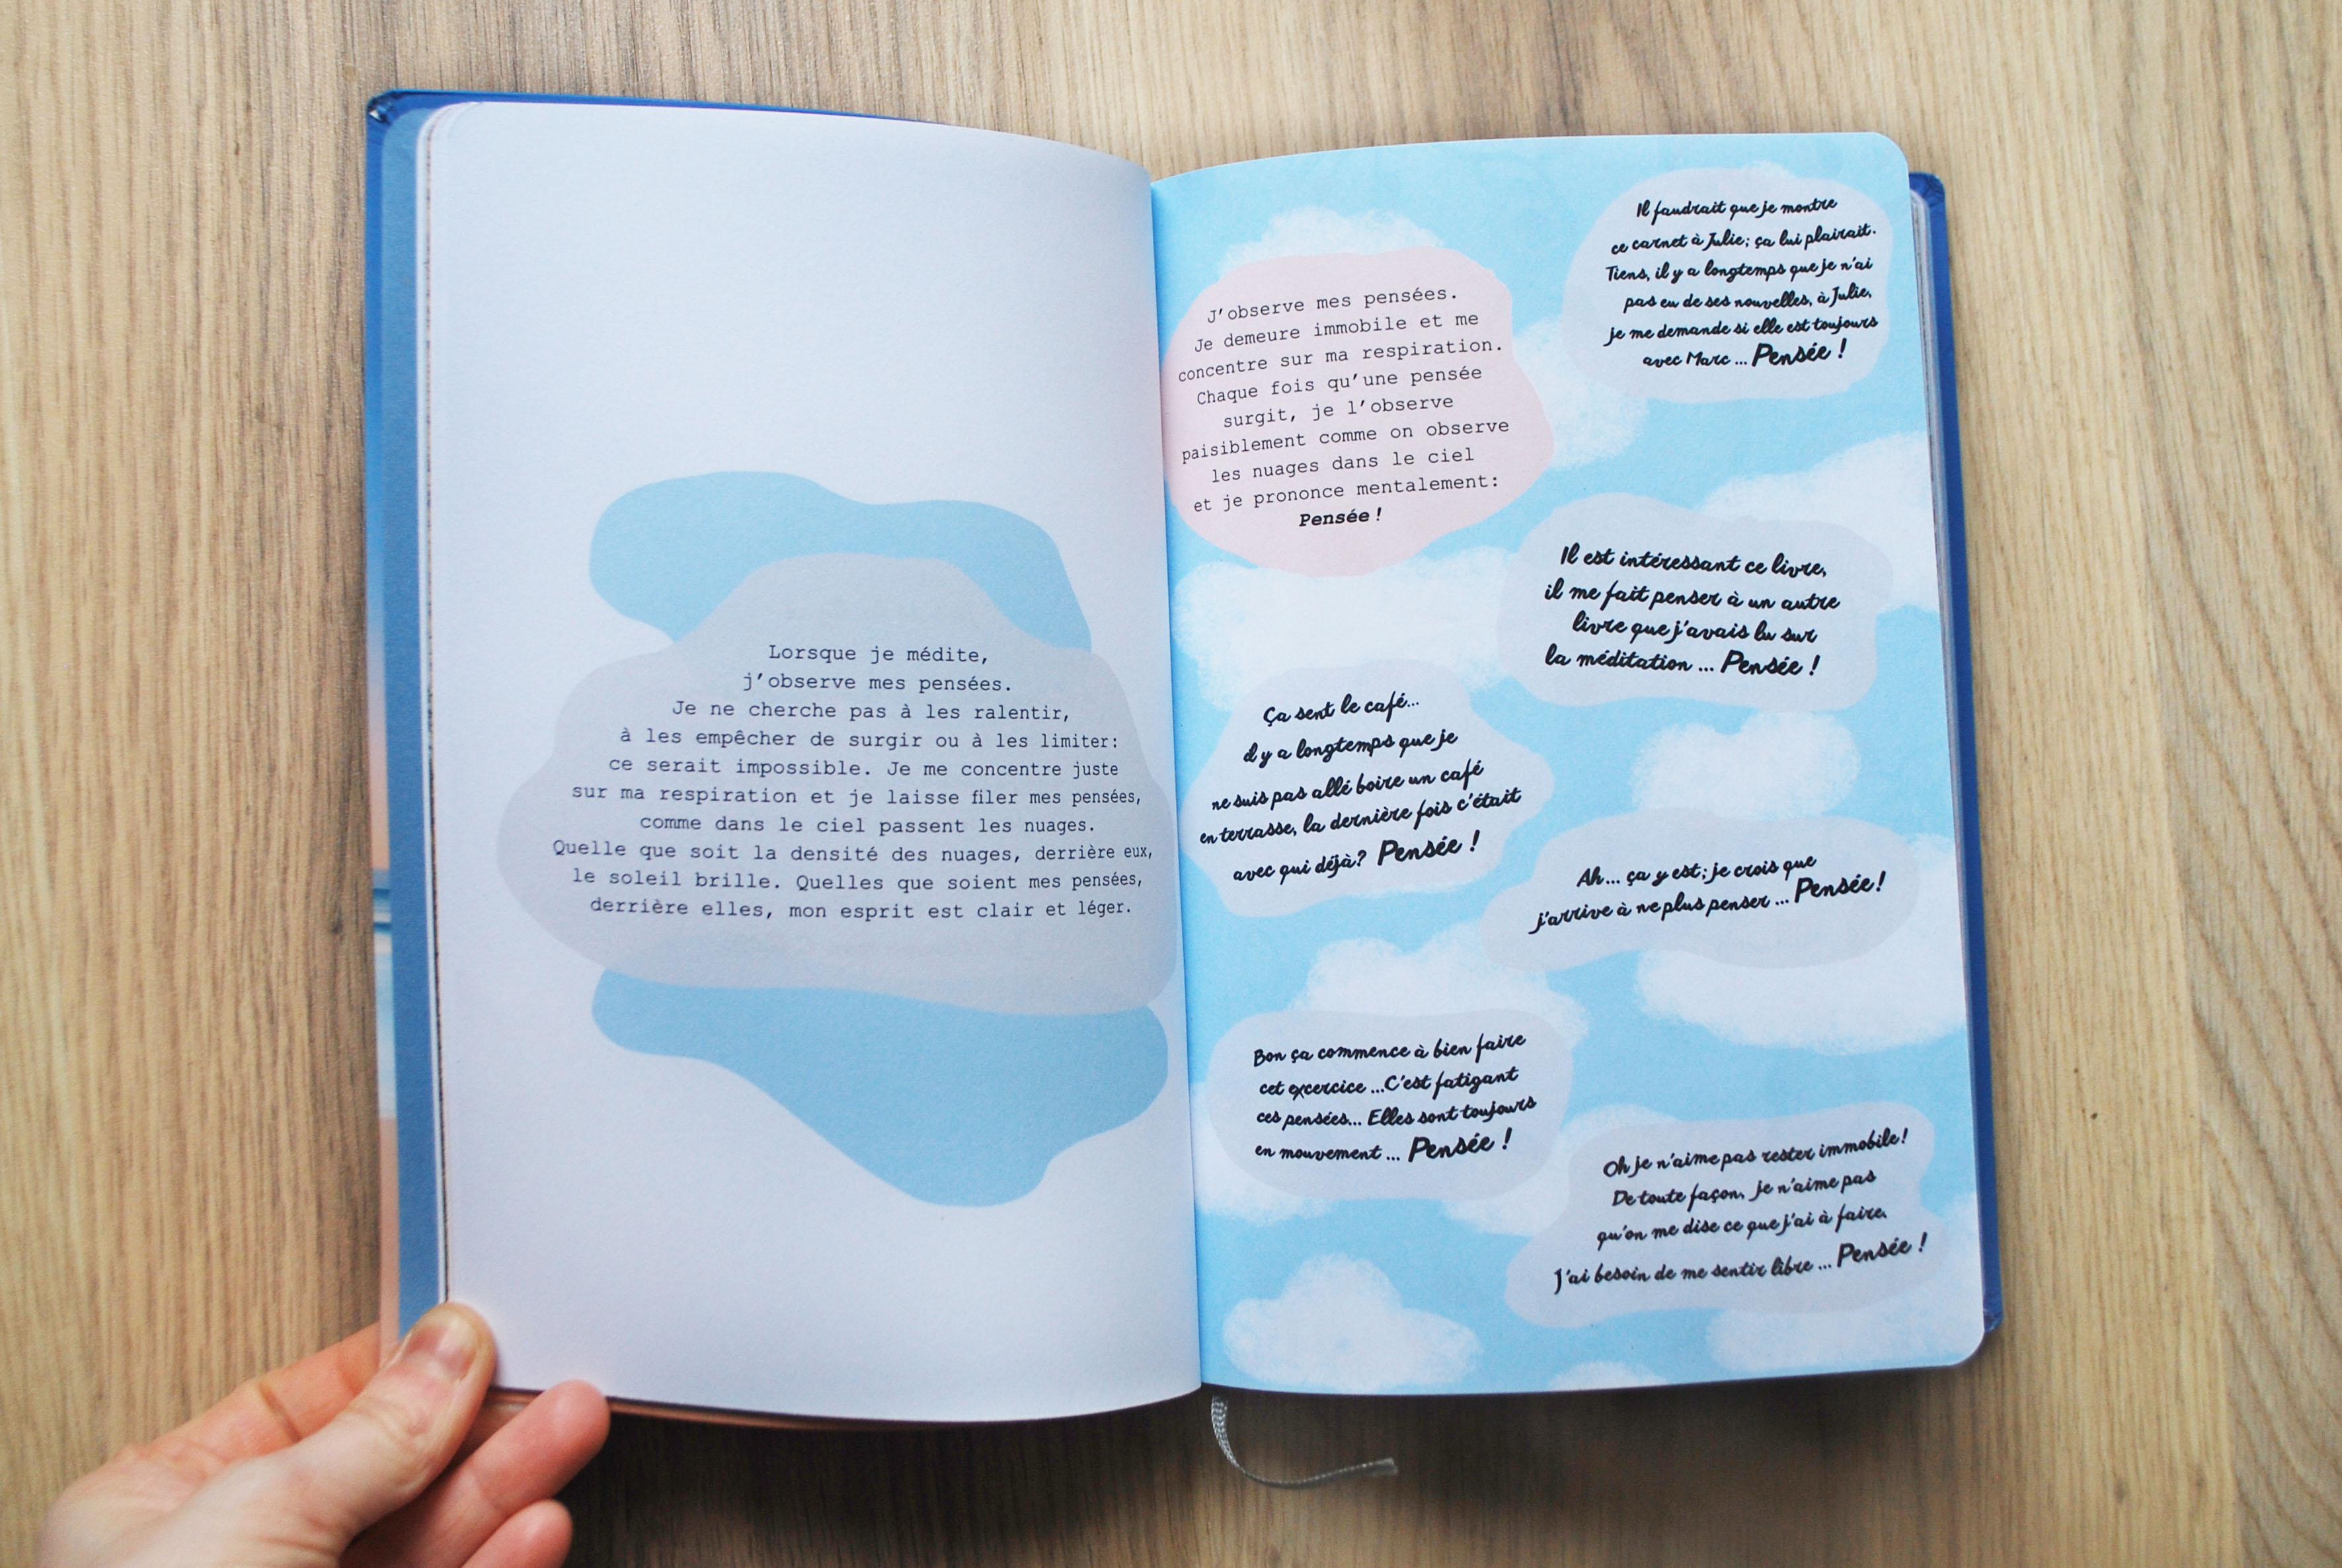 Lorsque je médite,
j'observe mes pensées.
Je ne cherche pas à les ralentir,
à les empêcher de surgir ou à les limiter:
ce serait impossible. Je me concentre juste
sur ma respiration et je laisse filer mes pensées,
comme dans le ciel passent les nuages.
Quelle que soit la densité des nuages, derrière eux,
le soleil brille. Quelles que soient mes pensées,
derrière elles, mon esprit est clair et léger.
J'observe mes pensées.
Je demeure immobile et me
concentre sur ma respiration.
Chaque fois qu'une pensée
surgit, je l'observe
paisiblement comme on observe
les nuages dans le ciel
et je prononce mentalement:
Pensée !
Il faudrait que je montre
ce carnet à Julie; ça lui plairait.
Tiens, il y a longtemps que je n'ai
pas eu de ses nouvelles, à Julie,
je me demande si elle est toujours
avec Marc ... Pensée !
Il est intéressant ce livre,
il me fait penser à un autre
livre que j'avais lu sur
la méditation ... Pensée !
Ça sent le café...
il y a longtemps que je
ne suis pas allé boire un café
en terrasse, la dernière fois c'était
avec qui déjà? Pensée !
Ah... ça y est; je crois que
j'arrive à ne plus penser ... Pensée!
Bon ça commence à bien faire
cet excercice ...C'est fatigant
ces pensées... Elles sont toujours
en mouvement ... Pensée !
Oh je n'aime pas rester immobile!
De toute façon, je n'aime pas
qu'on me dise ce que j'ai à faire.
J'ai besoin de me sentir libre ... Pensée !